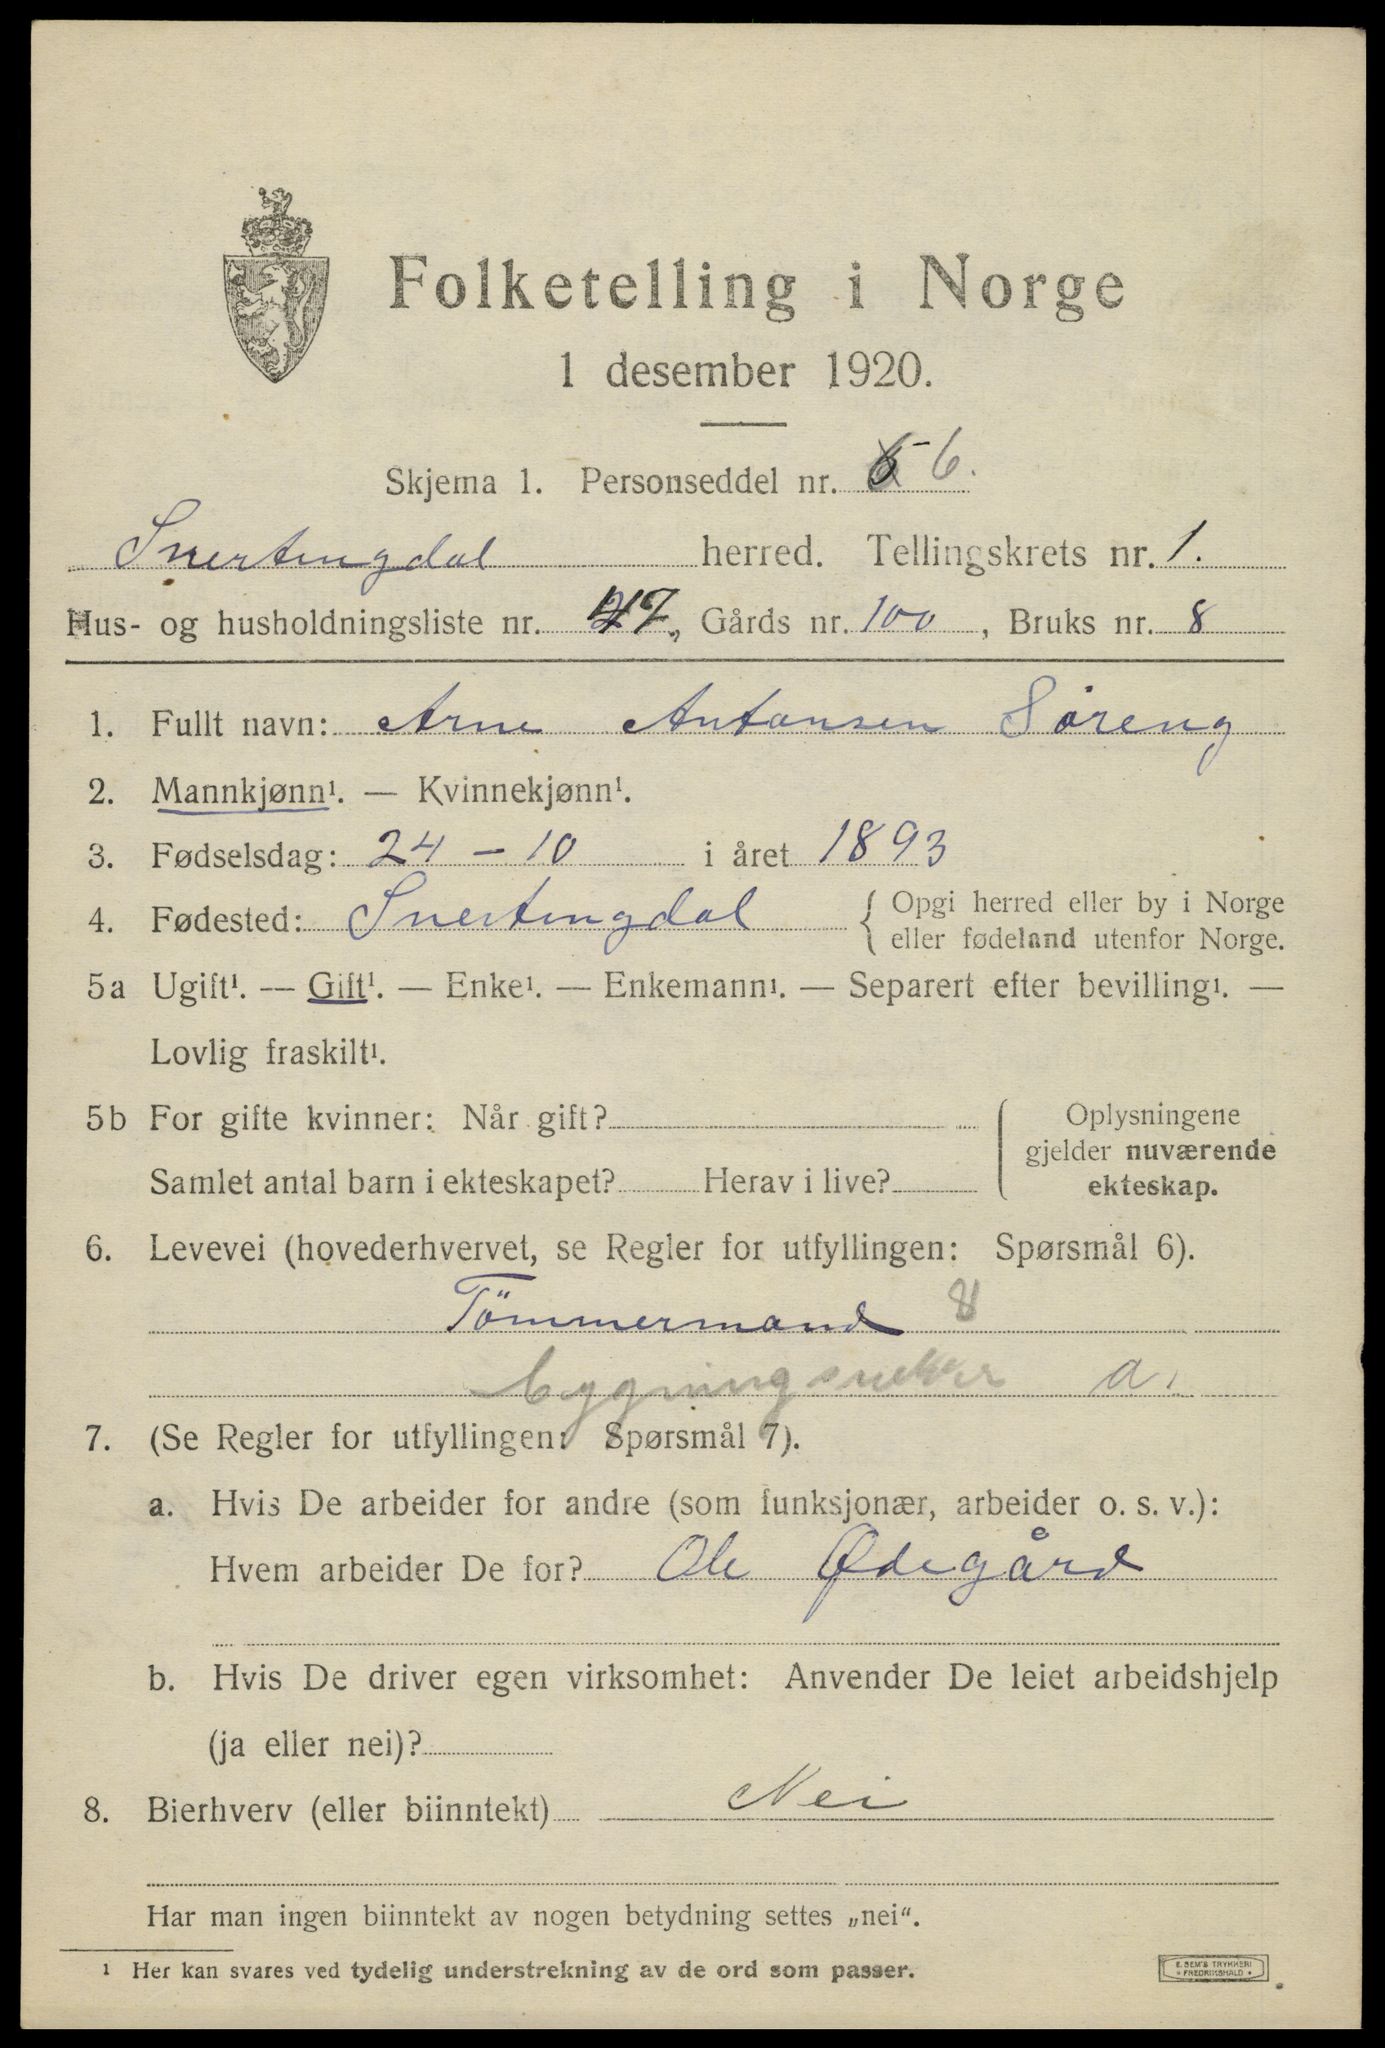 Folketelling i Norge
1 desember 1920.
Skjema 1. Personseddel nr. 6.
Snertingdal herred. Tellingskrets nr. 1.
Hus- og husholdningsliste nr. 47, Gårds nr. 100, Bruks nr. 8
1. Fullt navn: Arne Antonsen Söreng
2. Mannkjønn¹. — Kvinnekjønn¹.
3. Fødselsdag: 24 - 10 i året 1893
4. Fødested: Snertingdal { Opgi herred eller by i Norge
eller fødeland utenfor Norge.
5a Ugift¹. — Gift¹. — Enke¹. — Enkemann¹. — Separert efter bevilling¹. —
Lovlig fraskilt¹.
5b For gifte kvinner: Når gift?
Samlet antal barn i ekteskapet? Herav i live?
Oplysningene
gjelder nuværende
ekteskap.
6. Levevei (hovederhvervet, se Regler for utfyllingen: Spørsmål 6).
Tömmermand 8
bygningsnekker a.
7. (Se Regler for utfyllingen: Spørsmål 7).
a. Hvis De arbeider for andre (som funksjonær, arbeider o. s. v.):
Hvem arbeider De for? Ole Ødegård
b. Hvis De driver egen virksomhet: Anvender De leiet arbeidshjelp
(ja eller nei)?
8. Bierhverv (eller biinntekt) Nei
Har man ingen biinntekt av nogen betydning settes „nei“.
¹ Her kan svares ved tydelig understrekning av de ord som passer.
E. SEM'S TRYKKERI
• FREDRIKSHALD •